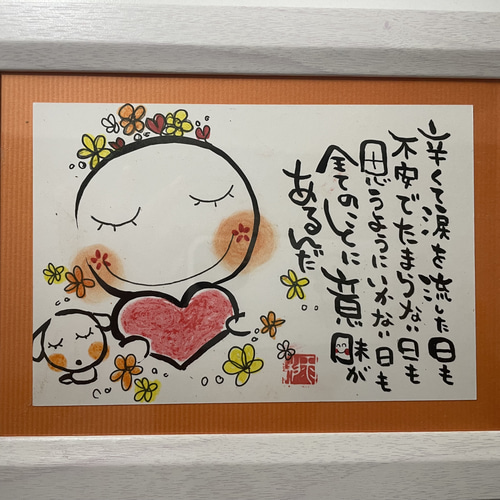 辛くて涙を流した日も
不安でたまらない日も
思うようにいかない日も
全てのことに意味が
あるんだ